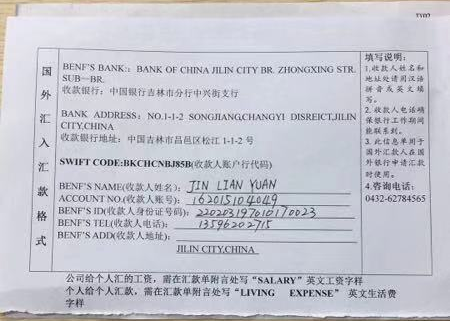 国外汇入汇款格式
BENF'S BANK.: BANK OF CHINA JILIN CITY BR. ZHONGXING STR. SUB—BR.
收款银行：中国银行吉林市分行中兴街支行
BANK ADDRESS: NO.1-1-2 SONGJIANG,CHANGYI DISREICT,JILIN
CITY,CHINA
收款银行地址：中国吉林市昌邑区松江 1-1-2 号
SWIFT CODE:BKCHCNBJ85B(收款人账户行代码)
BENF'S NAME(收款人姓名)：JIN LIAN YUAN
ACCOUNT NO.(收款人账号)：162015104049
BENF'S ID(收款人身份证号码)：220203197010170023
BENF'S TEL(收款人电话)：13596202715
BENF'S ADD(收款人地址)：
JILIN CITY,CHINA
填写说明：
1.收款人姓名和
地址处请用汉语
拼音或英文填
写。
2.收款人电话确
保银行工作期间
能联系到。
3.此信息单用于
国外汇款人在国
外银行申请汇款
时使用。
4.咨询电话：
0432-62784565
公司给个人汇的工资，需在汇款单附言处写“SALARY”英文工资字样
个人给个人汇款，需在汇款单附言处写“LIVING EXPENSE”英文生活费
字样